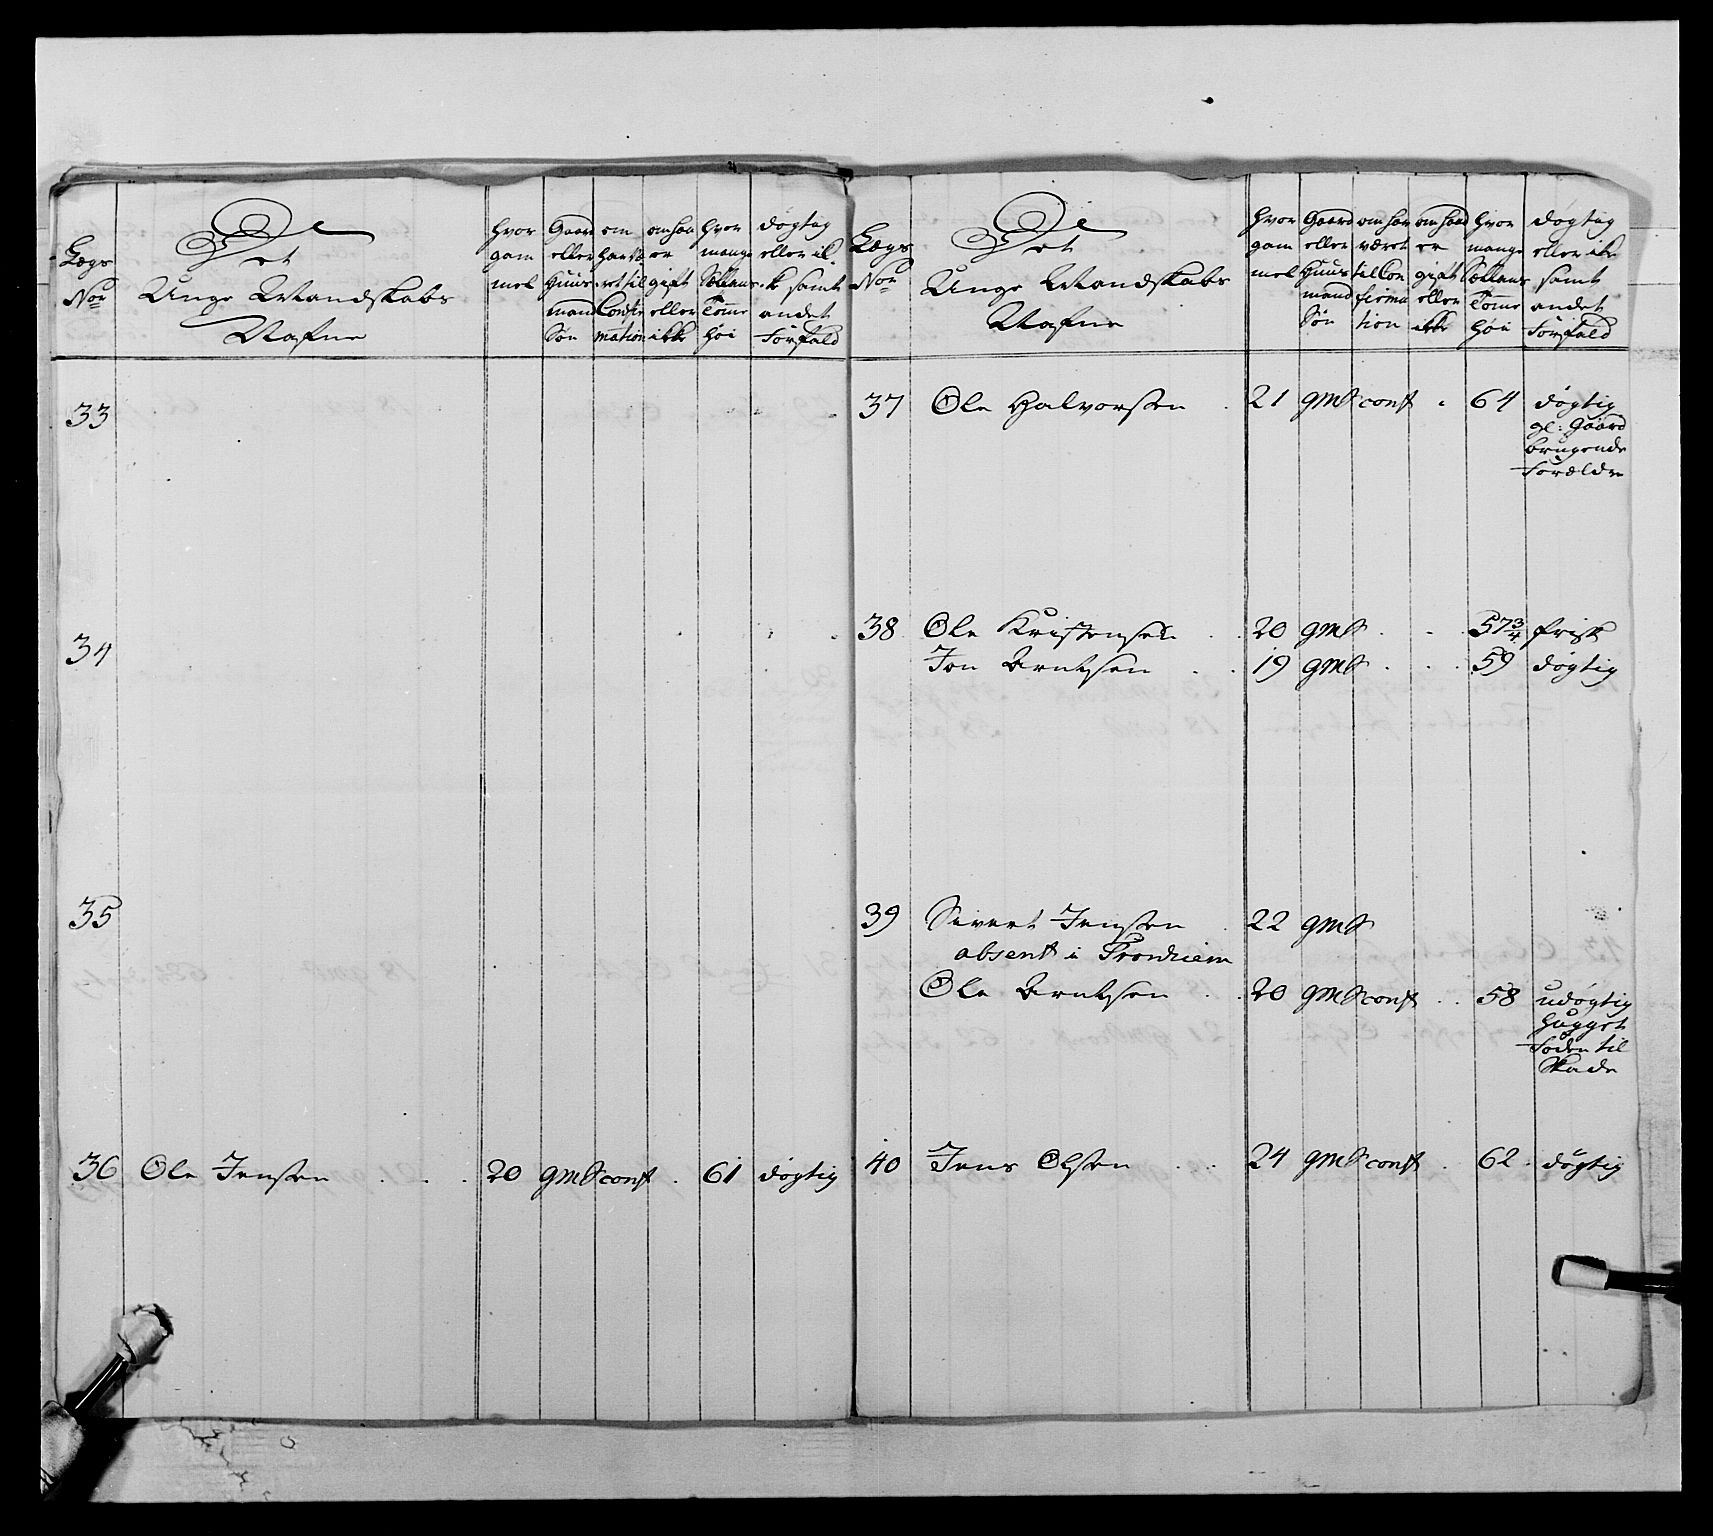 Lægs
Nor
Det
Unge Mandskabs
Nafne
hvor
gam
mel
Gaard
eller
Huus
mand
Søn
om
har væ
ret til
Confir
mation
om han
er
gift
eller
ikke
hvor
mange
Sællans
Tomme
høi
døgtig
eller ik
k samt
andet
Forfald
33
34
35
36 Ole Jensen . . . 20 gmS conf . 61 døgtig
Lægs
Nor
Det
Unge Mandskabs
Nafne
hvor
gam
mel
Gaard
eller
Huus
mand
Søn
om har
været
til Con
firma
tion
om han
er
gift
eller
ikke
hvor
mange
Sællans
Tomme
høi
døgtig
eller ikke
samt
andet
Forfald
37 Ole Halvorsen . 21 gmS conf . 64 døgtig
gl: Gaard
brugende
Forældre
38 Ole Kristensen . . 20 gmS . . 57 3/4 frisk
Jon Arntsen . . 19 gmS . . . 59 døgtig
39 Sivert Jensen . 22 gmS
absent i Tronhiem
Ole Arntsen . . 20 gmS conf . . 58 udøgtig
hugget
Foden til
Skade
40 Jens Olsen . . 24 gmS conf . 62 . døgtig